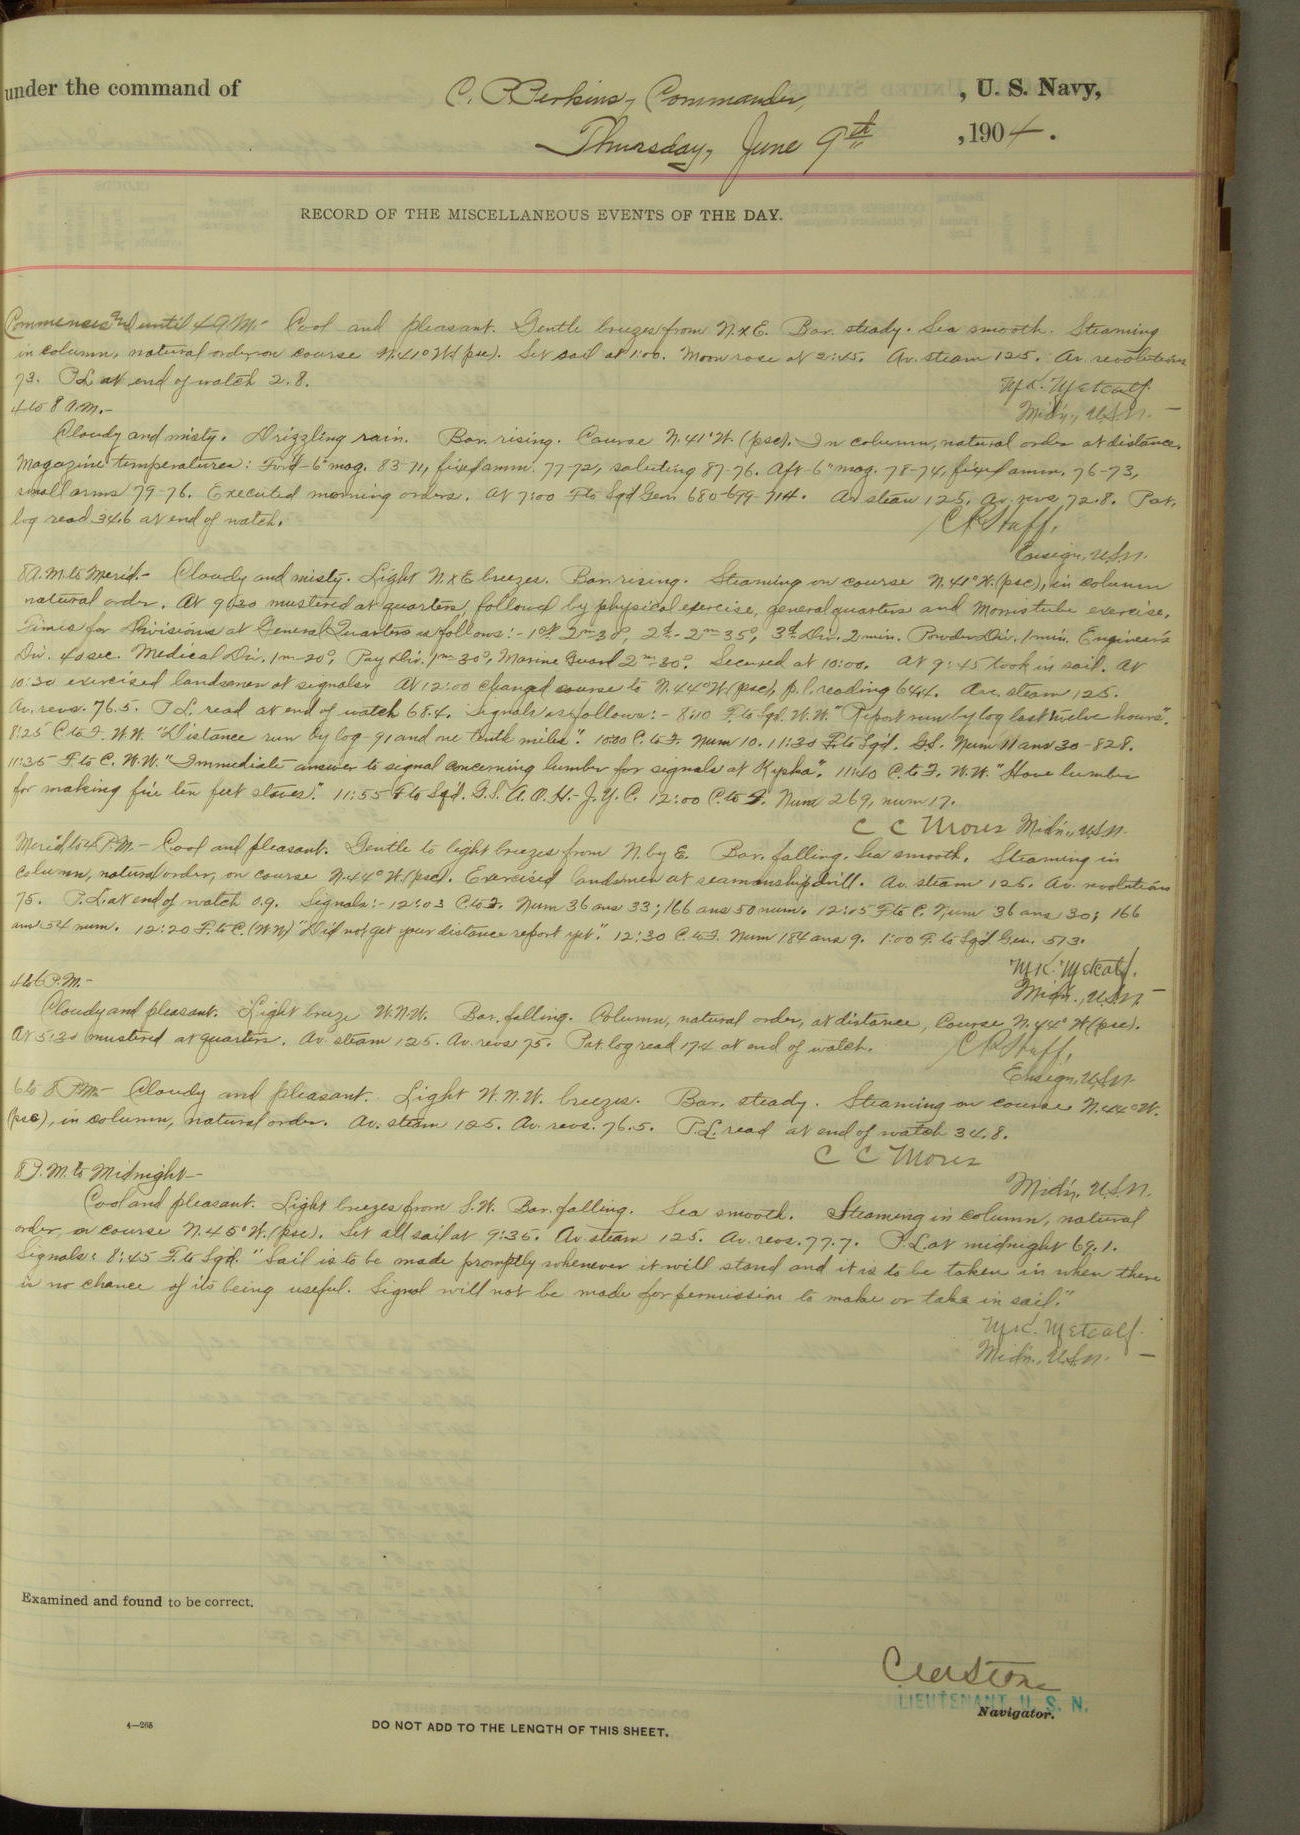 under the command of C. P. Perkins, Commander, , U. S. Navy,
Thursday, June 9th , 1904.
RECORD OF THE MISCELLANEOUS EVENTS OF THE DAY.
Commences and until 4 A.M.- Cool and pleasant. Gentle breezes from N x E. Bar. steady. Sea smooth. Steaming
in column, natural order, on course N.41°W.(psc). Set sail at 1:00. Moon rose at 2:45. Av. steam 125. Av. revolutions
73. P.L. at end of watch 2.8. M.K. Metcalf.
4 to 8 A.M.- Mid'n., U.S.N. -
Cloudy and misty. Drizzling rain. Bar. rising. Course N.41°W. (psc). In column, natural order at distance.
Magazine temperatures: For'd - 6" mag. 83-71, fixed amm. 77-72, saluting 87-76. Aft - 6" mag. 78-74, fixed amm. 76-73,
small arms 79-76. Executed morning orders. At 7:00 F to Sq'd Gen. 680-699-714. Av. steam 125. Av. revs. 72.8. Pat.
log read 34.6 at end of watch.
Ensign, U.S.N.
8 A.M. to Merid.- Cloudy and misty. Light N.x E. breezes. Bar. rising. Steaming on course N.41°W.(psc), in column
natural order. At 9:30 mustered at quarters, followed by physical exercise, general quarters and Morris tube exercise.
Times for Divisions at General Quarters as follows:- 1st. 2m-30s, 2d.- 2m 35s, 3d. Div. 2 min. Powder Div. 1 min. Engineer's
Div. 40 sec. Medical Div. 1m-20s, Pay Div. 1m-30s, Marine Guard 2m-30s. Secured at 10:00. At 9:45 took in sail. At
10:30 exercised landsmen at signals. At 12:00 changed course to N.44°W.(psc), p.l. reading 64.4. Ave. steam 125.
Av. revs. 76.5. P.L. read at end of watch 68.4. Signals as follows:- 8:10 F. to Sqd. W.W. "Report run by log last twelve hours".
8:25 C. to F. W.W. "Distance run by log - 91 and one tenth miles". 10:00 C. to F. Num 10. 11:30 F. to Sq'd. G.S. Num 11 ans 30-828.
11:35 F. to C. W.W. "Immediate answer to signal concerning lumber for signals at Kyska". 11:40 C. to F. W.W. "Have lumber
for making five ten feet staves". 11:55 F to Sq'd. G.S. A.O.H.- J.Y.C. 12:00 C. to F. Num 269, num 17.
C C Moses Mid'n., U.S.N.
Merid to 4 P.M.- Cool and pleasant. Gentle to light breezes from N. by E. Bar. falling. Sea smooth. Steaming in
column, natural order, on course N.44°W.(psc). Exercised landsmen at seamanship drill. Av. steam 125. Av. revolutions
75. P.L. at end of watch 0.9. Signals:- 12:03 C. to F. Num 36 ans 33; 166 ans 50 num. 12:15 F to C. Num 36 ans 30; 166
ans 54 num. 12:20 F. to C. (W.W.) "Did not get your distance report yet". 12:30 C. to F. Num 184 ans 9. 1:00 F. to Sq'd. Gen. 513.
M.K. Metcalf.
4 to 6 P.M.- Mid'n., U.S.N. -
Cloudy and pleasant. Light breeze W.N.W. Bar. falling. Column, natural order, at distance, Course N.44°W(psc).
At 5:30 mustered at quarters. Av. steam 125. Av. revs 75. Pat. log read 17.4 at end of watch.
Ensign, U.S.N.
6 to 8 P.M.- Cloudy and pleasant. Light W.N.W. breezes. Bar. steady. Steaming on course N.44°W.
(psc), in column, natural order. Av. steam 125. Av. revs. 76.5. P.L. read at end of watch 34.8.
C C Moses
8 P.M. to Midnight- Mid'n, U.S.N.
Cool and pleasant. Light breezes from S.W. Bar. falling. Sea smooth. Steaming in column, natural
order, on course N.45°W.(psc). Set all sail at 9:35. Av. steam 125. Av. revs. 77.7. P.L. at midnight 69.1.
Signals: 8:45 F. to Sqd. "Sail is to be made promptly whenever it will stand and it is to be taken in when there
is no chance of its being useful. Signal will not be made for permission to make or take in sail."
M.K. Metcalf.
Mid'n., U.S.N. -
Examined and found to be correct.
LIEUTENANT, U. S. N.
Navigator.
4-265
DO NOT ADD TO THE LENGTH OF THIS SHEET.